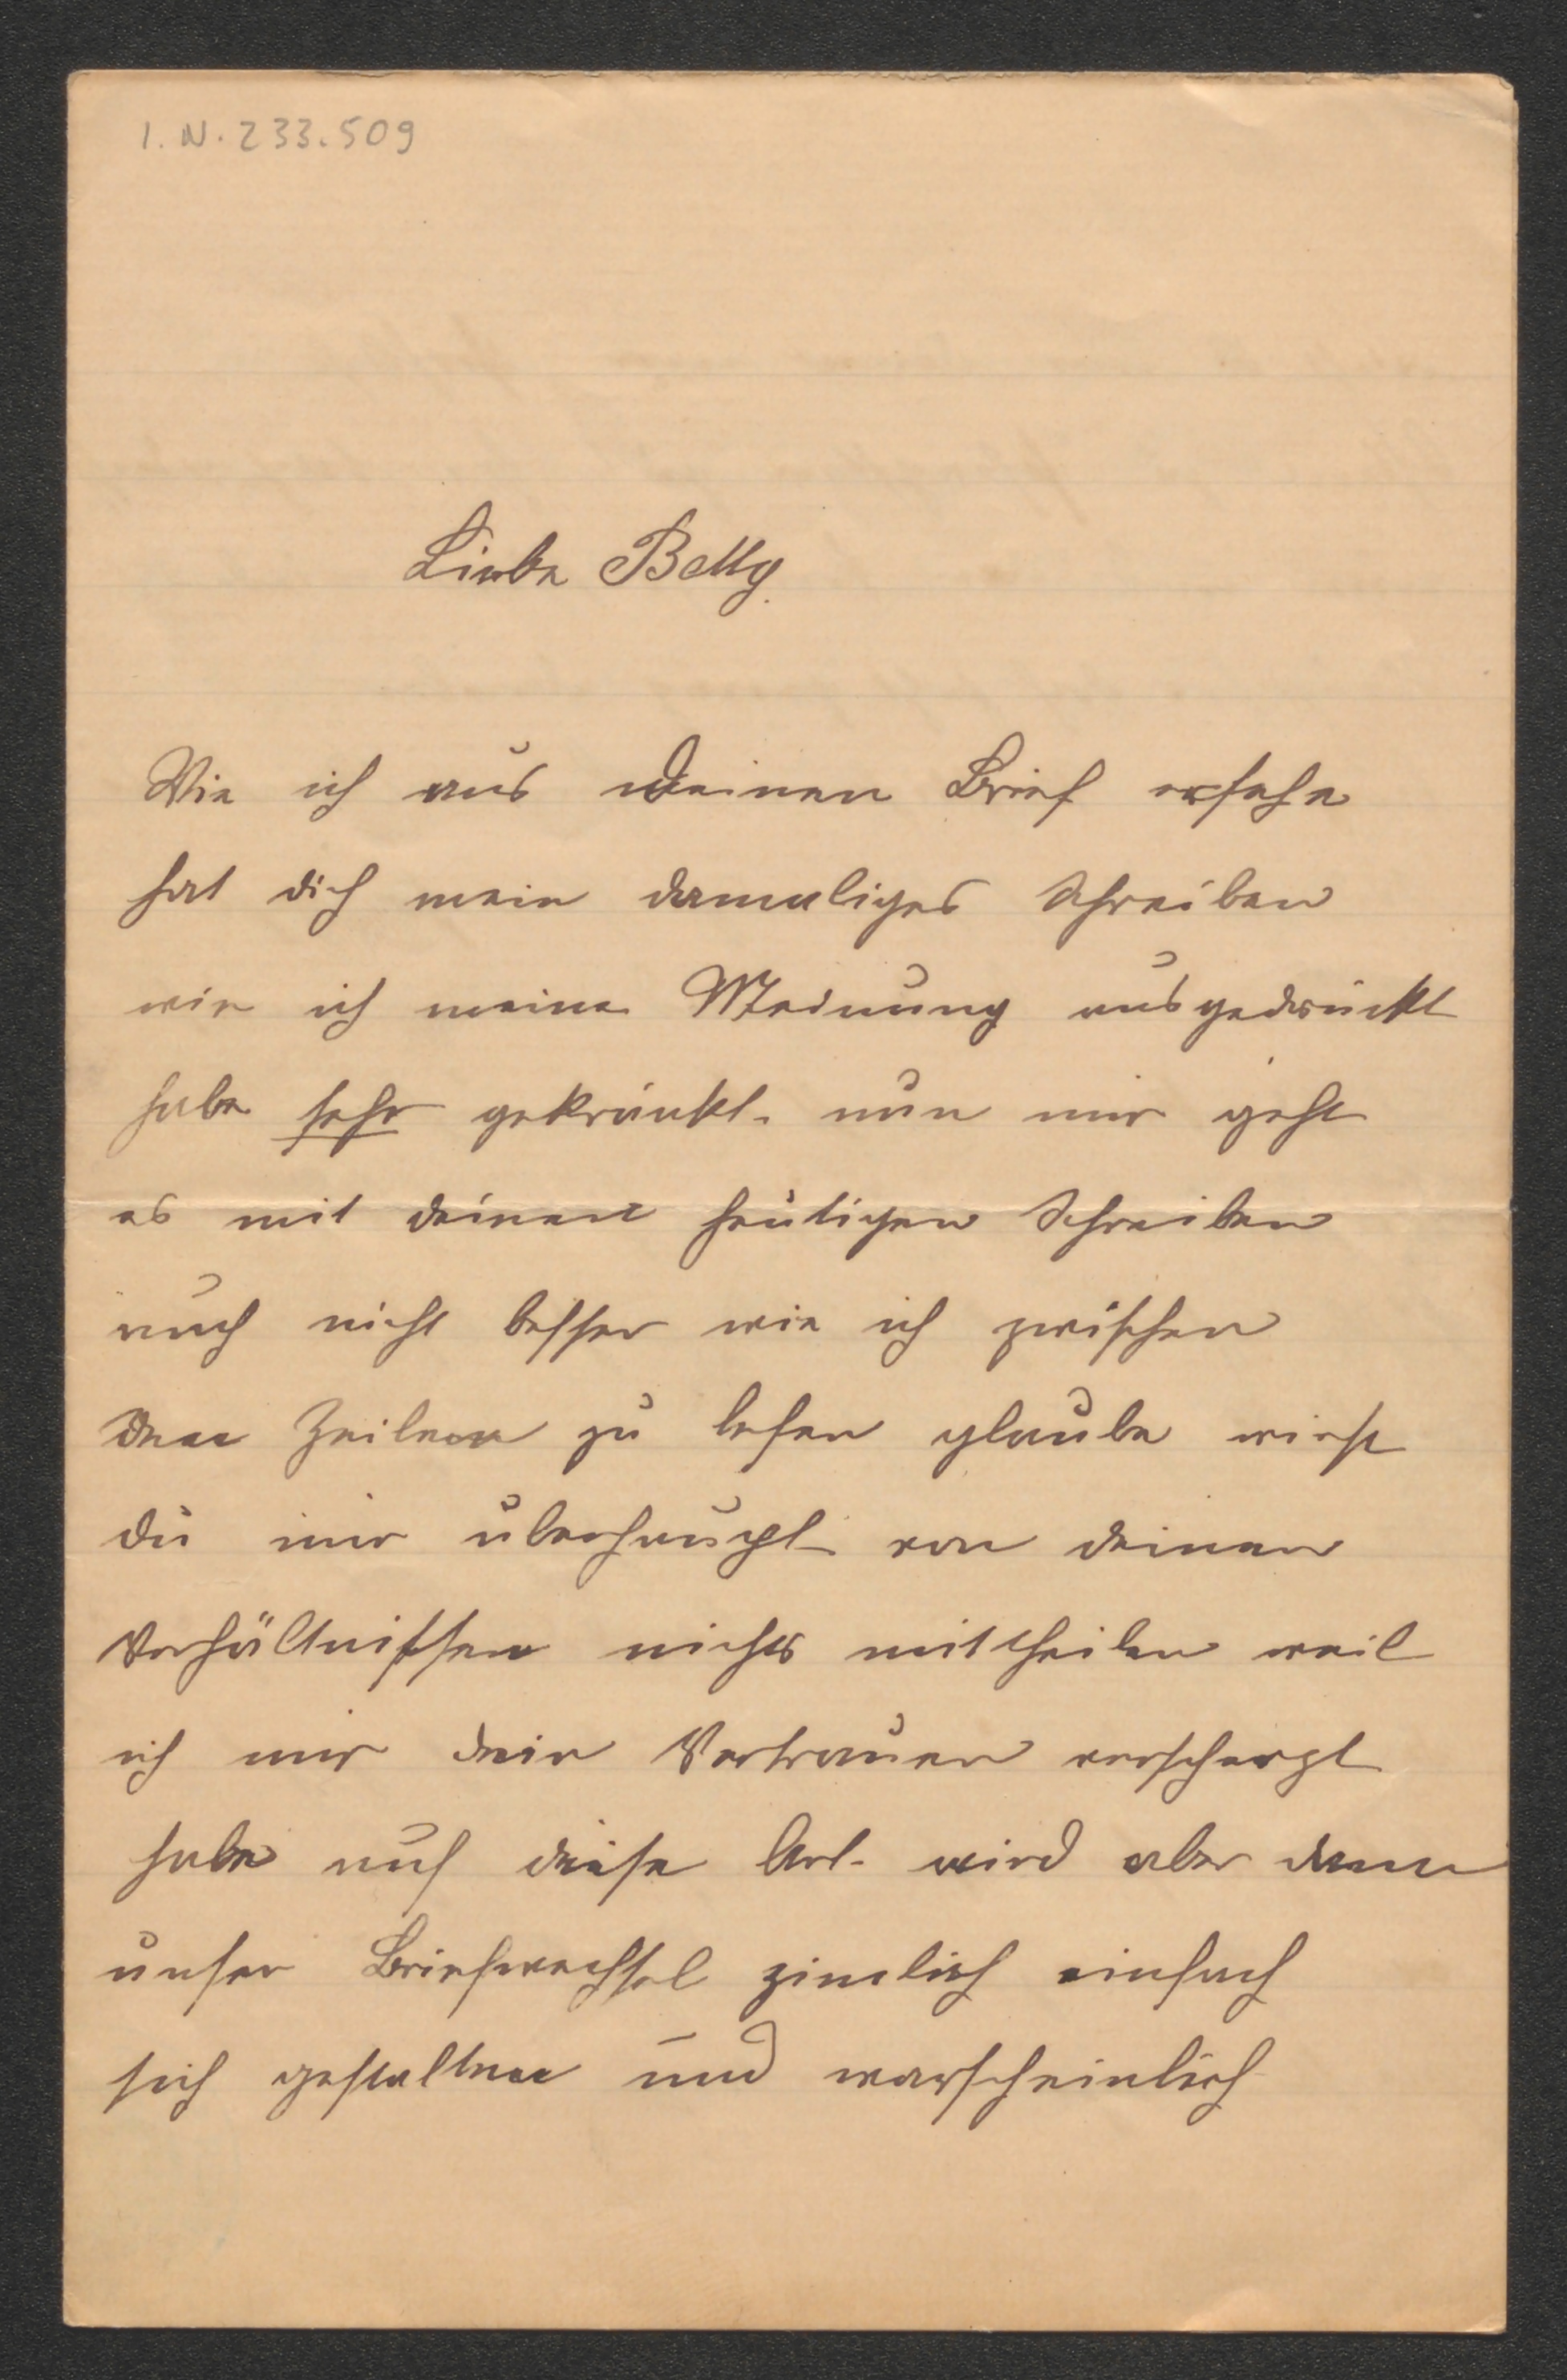 I.N. 233.509
Liebe Betty
Wie ich aus deinen Brief ersehe
hat dich mein damaliges Schreiben
wie ich meine Meinung ausgedrückt
habe sehr gekränkt. nun mir geht
es mit deinen heutigen Schreiben
auch nicht besser wie ich zwischen
den Zeilen zu lesen glaube wirst
du mir überhaupt von deinen
Verhältnissen nichts mittheilen weil
ich mir dein Vertrauen verscherzt
habe auf diese Art. wird aber dann
unser Briefwechsel zimlich einfach
sich gestalten und warscheinlich